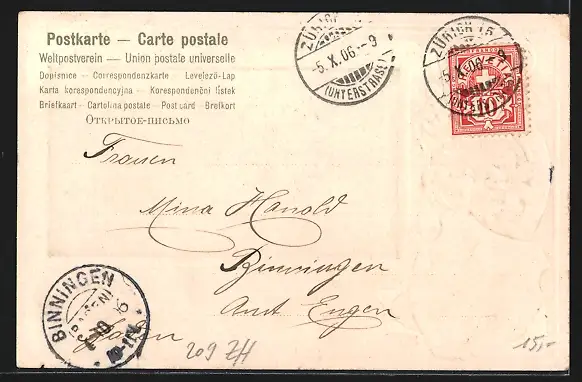 Postkarte — Carte postale
Weltpostverein — Union postale universelle
Dopisnice - Correspondenzkarte - Levelező-Lap
Karta korespondencyjna - Korespondenční lístek
Briefkaart - Cartolina postale - Post card - Brefkort
Открытое-письмо
ZÜRICH 15
-5.X.06.-9
(UNTERSTRASS)
ZÜRICH 15
-5.X.06-9
10
Frauen
Mina Hanold
Binningen
Amt Engen
Baden
BINNINGEN
(BADEN)
10-11V
209 ZH
15,-